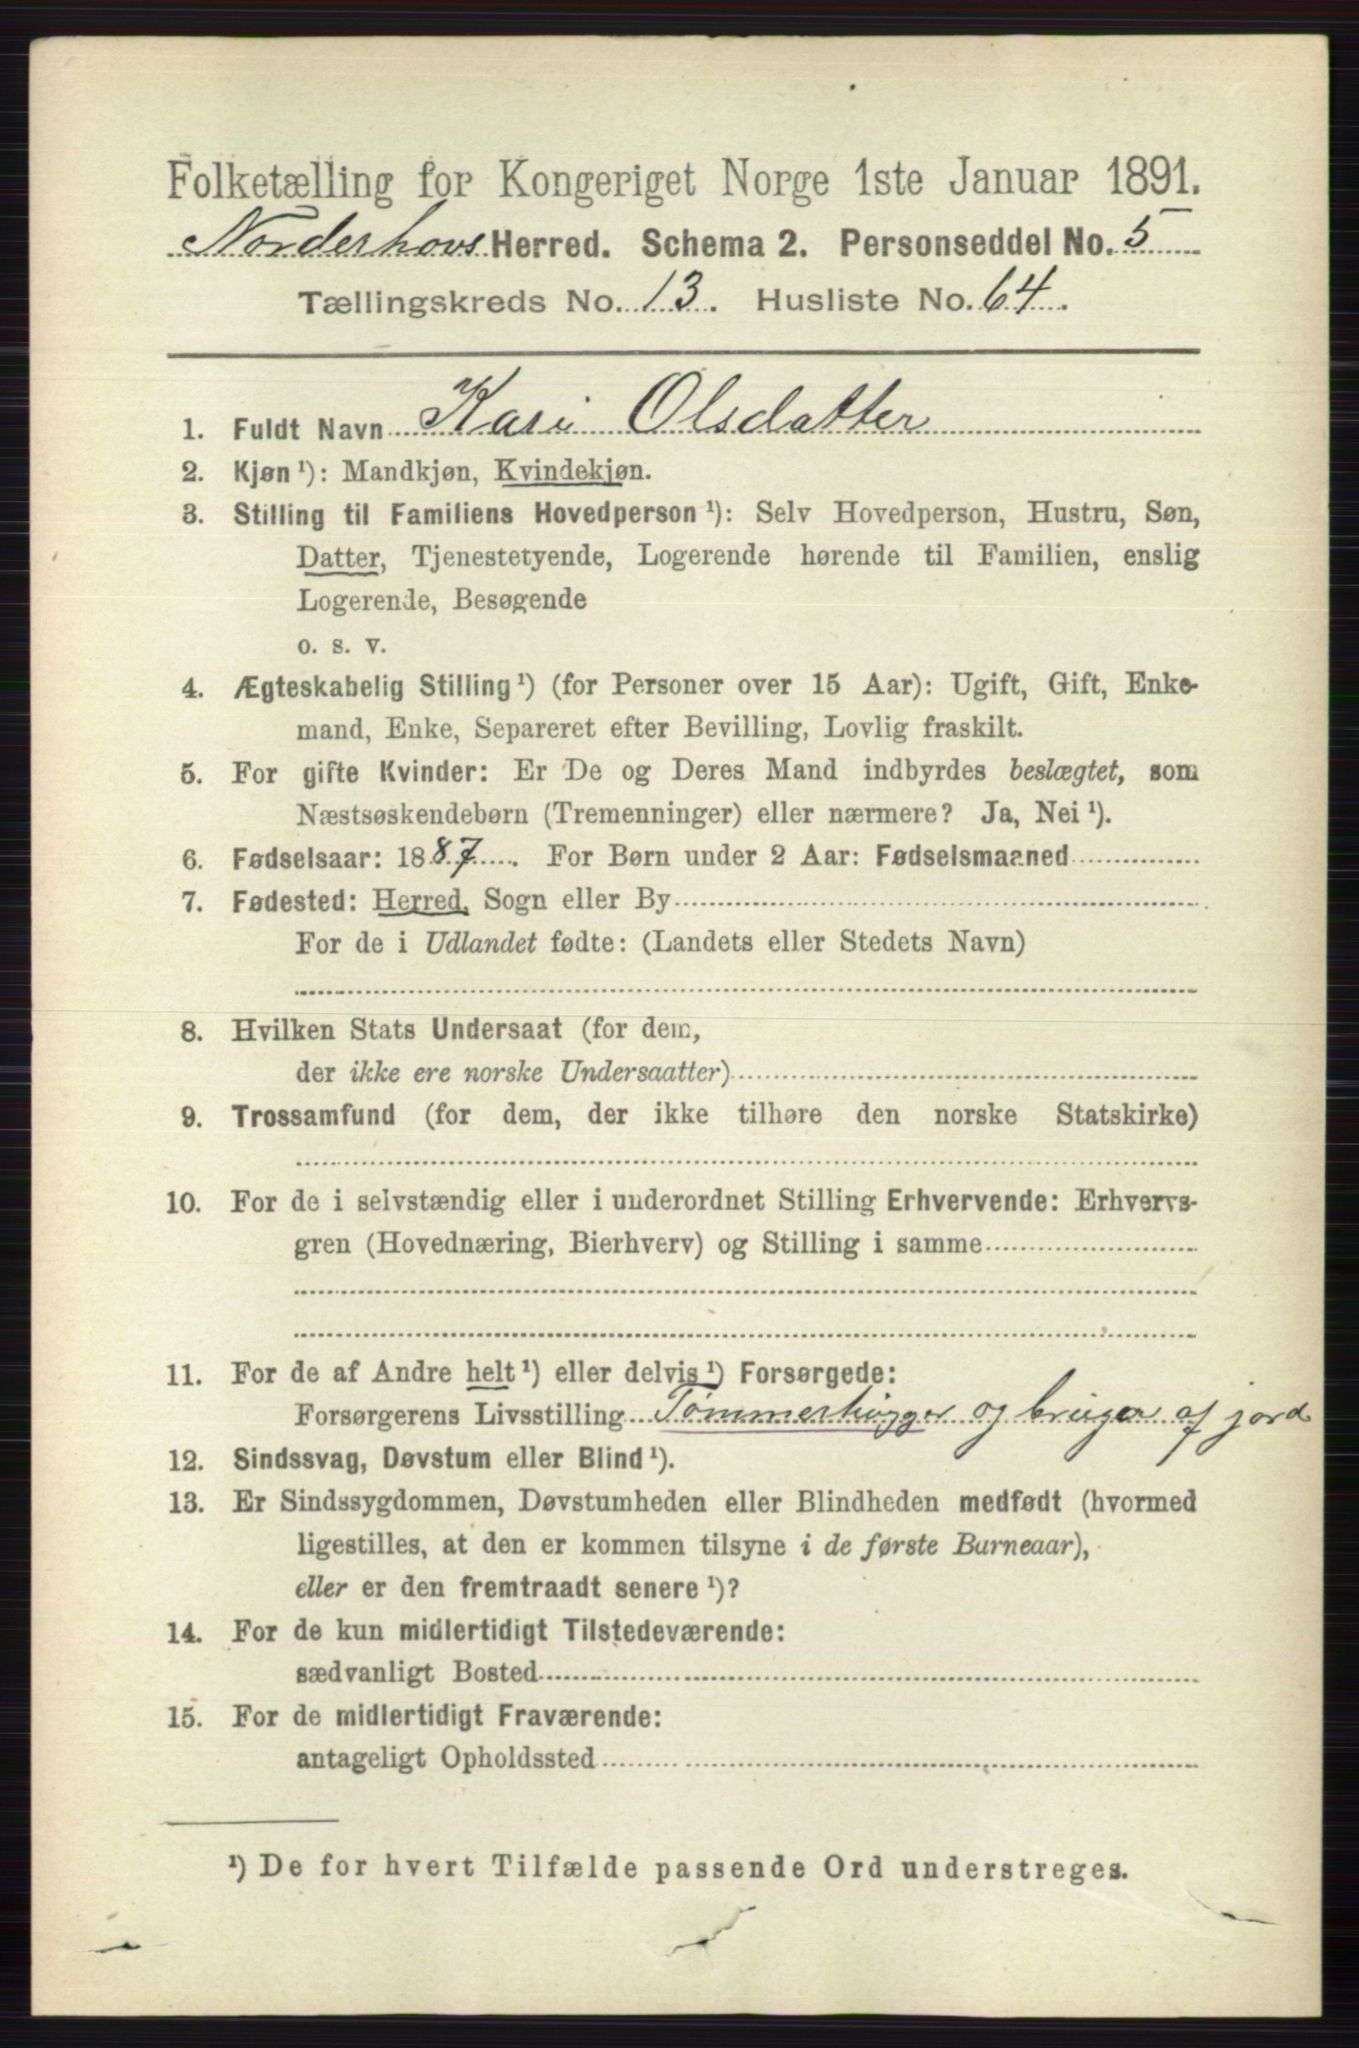 Folketælling for Kongeriget Norge 1ste Januar 1891.
Norderhovs Herred. Schema 2. Personseddel No. 5
Tællingskreds No. 13. Husliste No. 64.
1. Fuldt Navn Kari Olsdatter
2. Kjøn¹): Mandkjøn, Kvindekjøn.
3. Stilling til Familiens Hovedperson¹): Selv Hovedperson, Hustru, Søn,
Datter, Tjenestetyende, Logerende hørende til Familien, enslig
Logerende, Besøgende
o. s. v.
4. Ægteskabelig Stilling¹) (for Personer over 15 Aar): Ugift, Gift, Enke-
mand, Enke, Separeret efter Bevilling, Lovlig fraskilt.
5. For gifte Kvinder: Er De og Deres Mand indbyrdes beslægtet, som
Næstsøskendebørn (Tremenninger) eller nærmere? Ja, Nei¹).
6. Fødselsaar: 1887. For Børn under 2 Aar: Fødselsmaaned
7. Fødested: Herred, Sogn eller By
For de i Udlandet fødte: (Landets eller Stedets Navn)
8. Hvilken Stats Undersaat (for dem,
der ikke ere norske Undersaatter)
9. Trossamfund (for dem, der ikke tilhøre den norske Statskirke)
10. For de i selvstændig eller i underordnet Stilling Erhvervende: Erhvervs-
gren (Hovednæring, Bierhverv) og Stilling i samme
11. For de af Andre helt¹) eller delvis¹) Forsørgede:
Forsørgerens Livsstilling Tømmerhugger og bruger af jord
12. Sindssvag, Døvstum eller Blind¹).
13. Er Sindssygdommen, Døvstumheden eller Blindheden medfødt (hvormed
ligestilles, at den er kommen tilsyne i de første Barneaar),
eller er den fremtraadt senere¹)?
14. For de kun midlertidigt Tilstedeværende:
sædvanligt Bosted
15. For de midlertidigt Fraværende:
antageligt Opholdssted
¹) De for hvert Tilfælde passende Ord understreges.